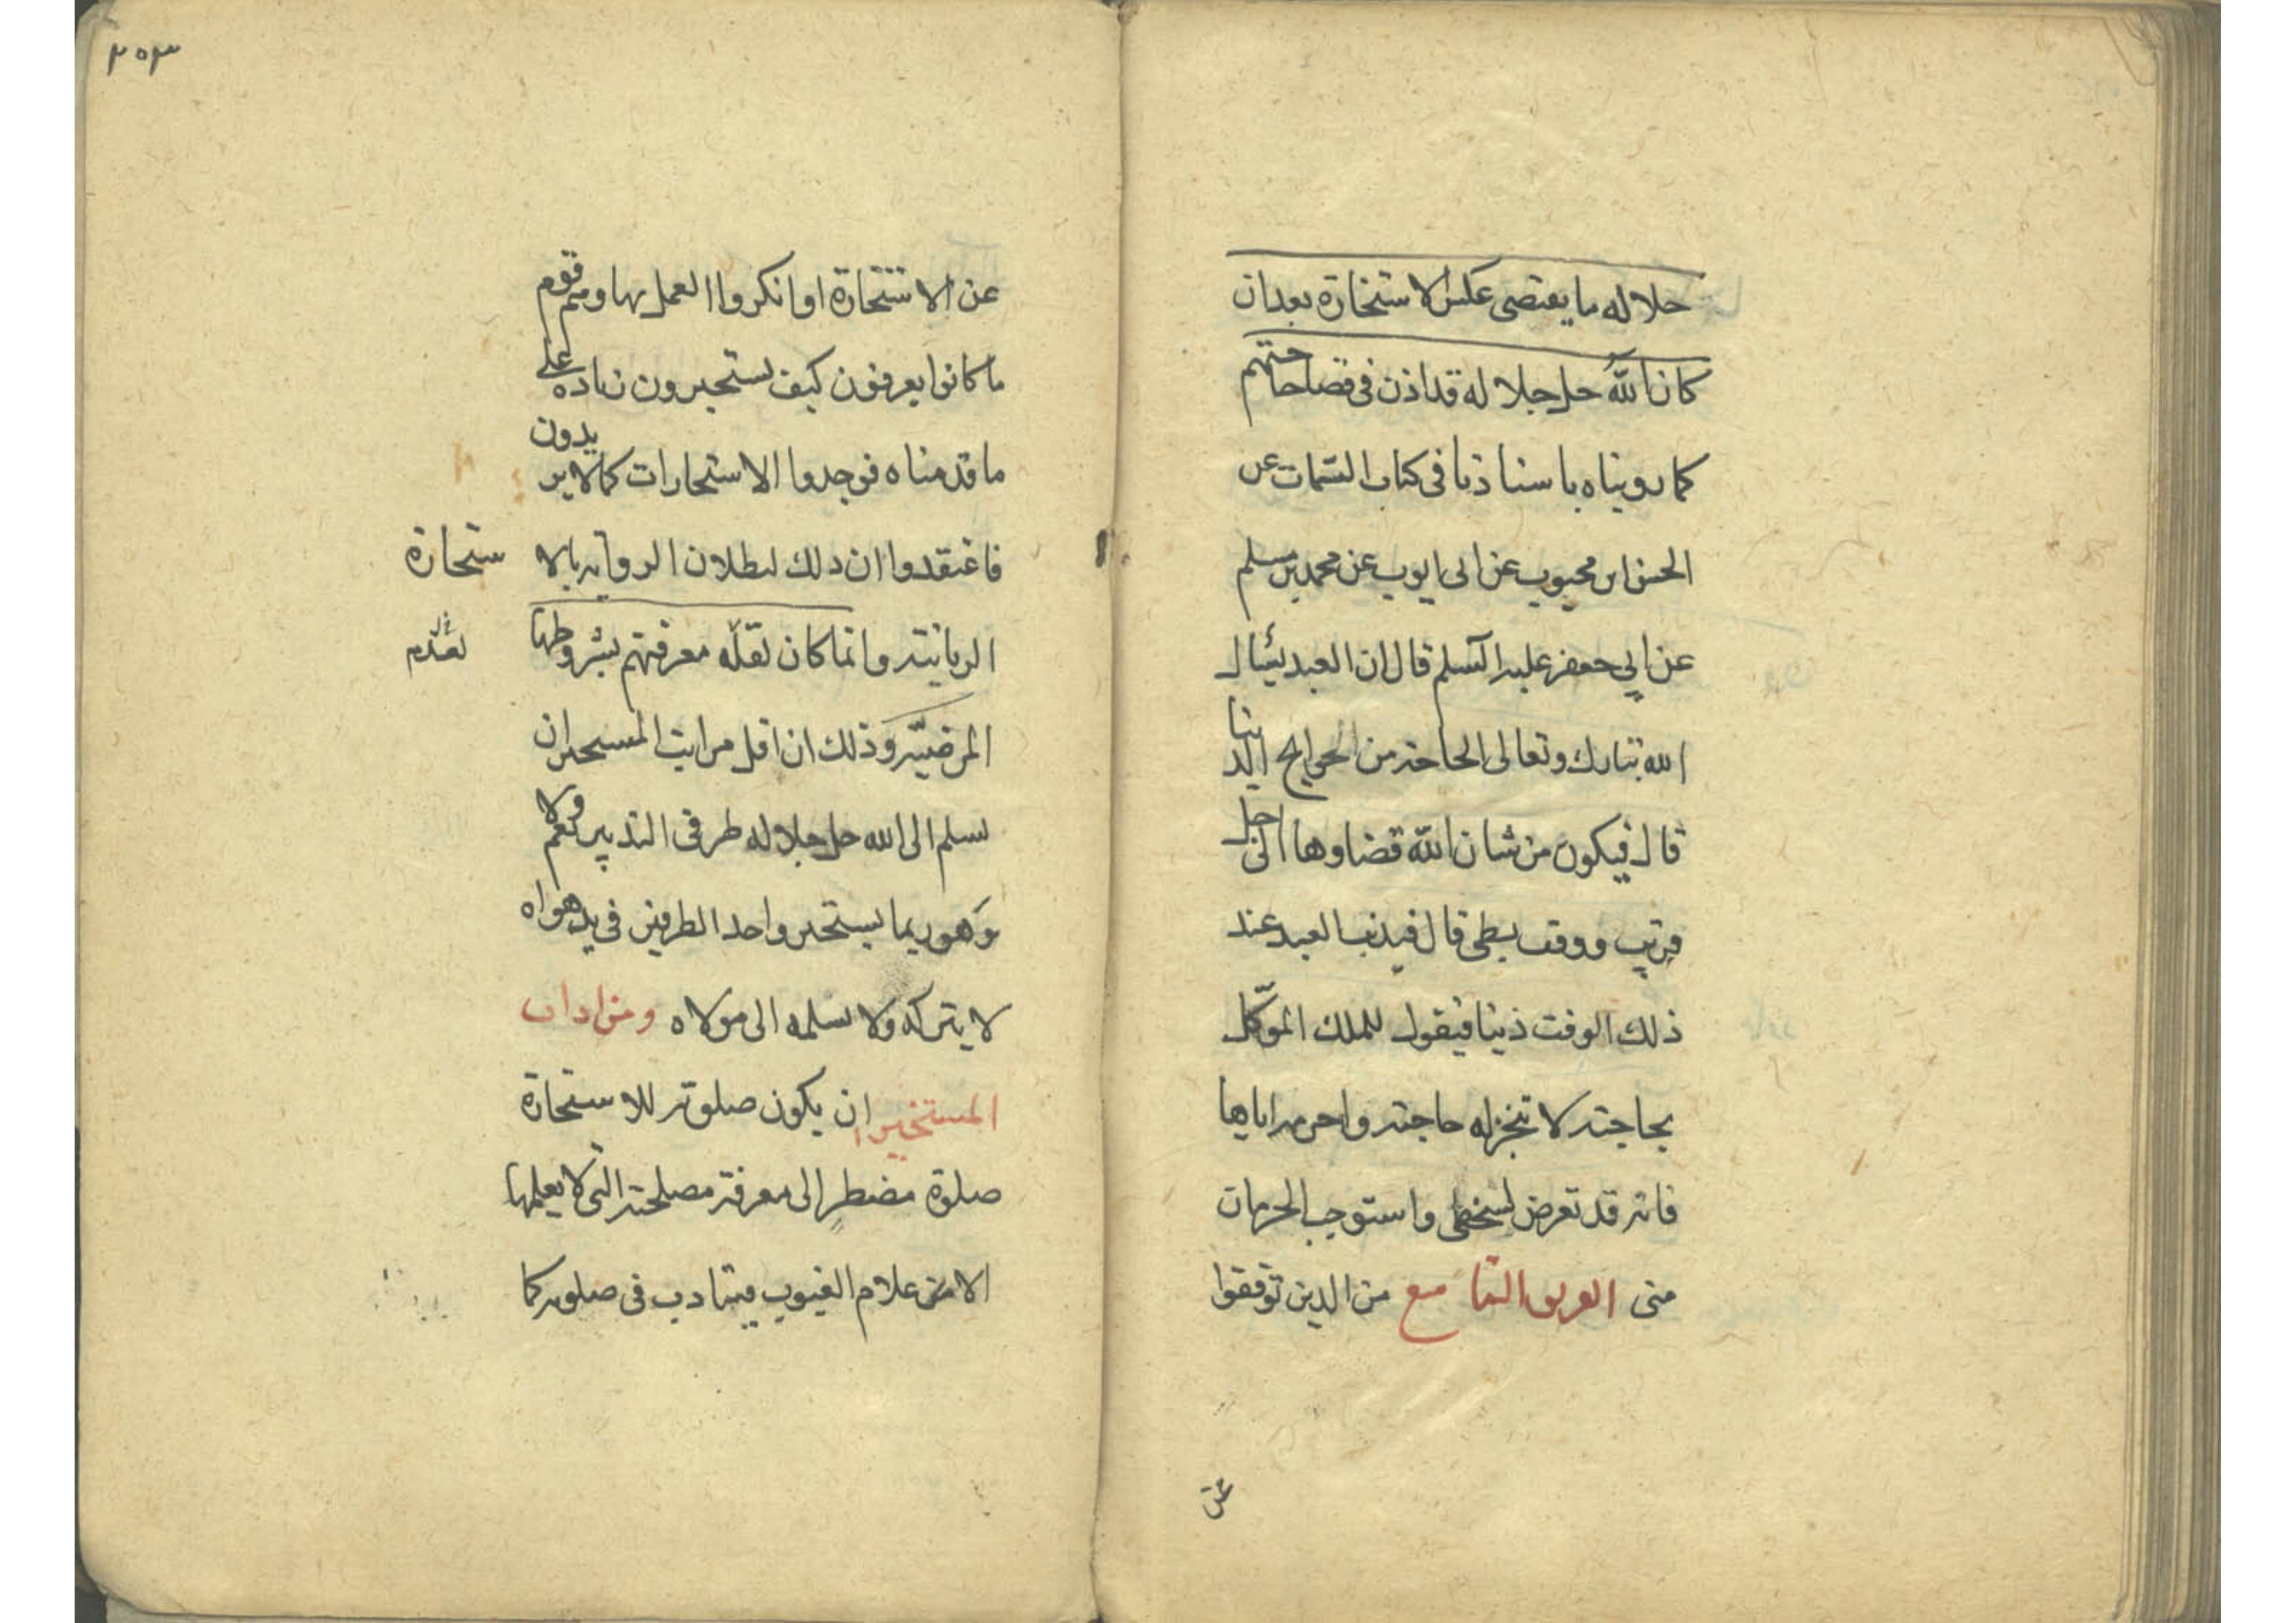 جلاله ما يقتضى عكس الاستخارة بعد ان
كان الله جل جلاله قد اذن فى قضا حاجتهم
كما رويناه باسنادنا فى كتاب التتمات عن
الحسن ابن محبوب عن ابى ايوب عن محمد بن مسلم
عن ابي جعفر عليه السلم قال ان العبد يسئال
الله تبارك وتعالى الحاجة من الحوايج الدنيا
قال فيكون من شان الله قضاوها الى اجل
قريب ووقت بطى قال فيذنب العبد عند
ذلك الوقت ذنبا فيقول للملك الموكل
بحاجته لا تنجزله حاجته واحرمه اياها
فانه قد تعرض لسخطى واستوجب الحرمان
منى الفريق التاسع من الذين توقفوا
عن
٢٥٣
عن الاستخارة او انكروا العمل بها ومنهم قوم
ما كانوا يعرفون كيف يستخيرون زيادة على
ما قدمناه فوجدوا الاستخارات كما لا يريدون
فاعتقدوا ان ذلك لبطلان الرواية بالا ستخارة
الربانية وانما كان لقلة معرفتهم بشروطها
لعدم
المرضية وذلك ان اقل مراتب المستخير ان
يسلم الى الله جل جلاله طرفى التدبير ولا نعم
وهو ربما يستخير واحد الطرفين فى يد هواه
لا يتركه ولا يسلمه الى مولاه ومن اداب
المستخير ان يكون صلوته للاستخارة
صلوة مضطر الى معرفة مصلحته التى لا يعلمها
الا من علام الغيوب فيتادب فى صلوته كما